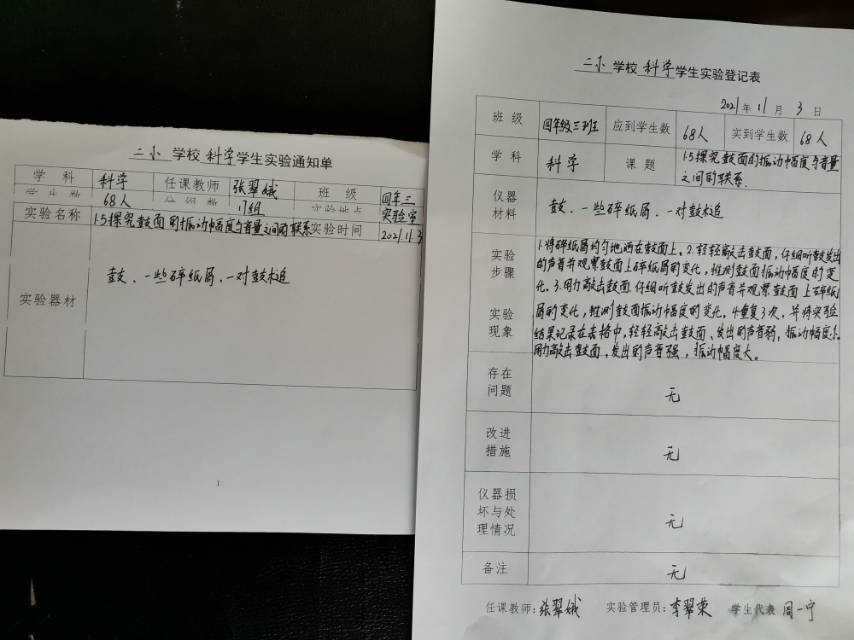 二小 学校 科学 学生实验通知单
学 科 科学 任课教师 张翠娥 班 级 四年三
学生数 68人 分组数 17组 实验地点 实验室
实验名称 1.5探究鼓面的振动幅度与音量之间的联系 实验时间 2021.11.3
实验器材 鼓、一些碎纸屑、一对鼓术追
1
二小 学校 科学 学生实验登记表
2021年 11 月 3 日
班 级 四年级三班 应到学生数 68人 实到学生数 68人
学 科 科学 课 题 1.5探究鼓面的振动幅度与音量
之间的联系.
仪器
材料
鼓、一些碎纸屑、一对鼓术追
实验
步骤
实验
现象
1.将碎纸屑均匀地洒在鼓面上。2.轻轻敲击鼓面,仔细听鼓发出
的声音并观察鼓面上碎纸屑的变化,推测鼓面振动幅度的变
化。3.用力敲击鼓面.仔细听鼓发出的声音并观察鼓面上碎纸
屑的变化,推测鼓面振动幅度的变化。4.重复3次,并将实验
结果记录在表格中。轻轻敲击鼓面、发出的声音弱,振动幅度小。
用力敲击鼓面,发出的声音强,振动幅度大。
存在
问题
无
改进
措施
无
仪器损
坏与处
理情况
无
备注 无
任课教师:张翠娥 实验管理员:李翠荣 学生代表 周一宁